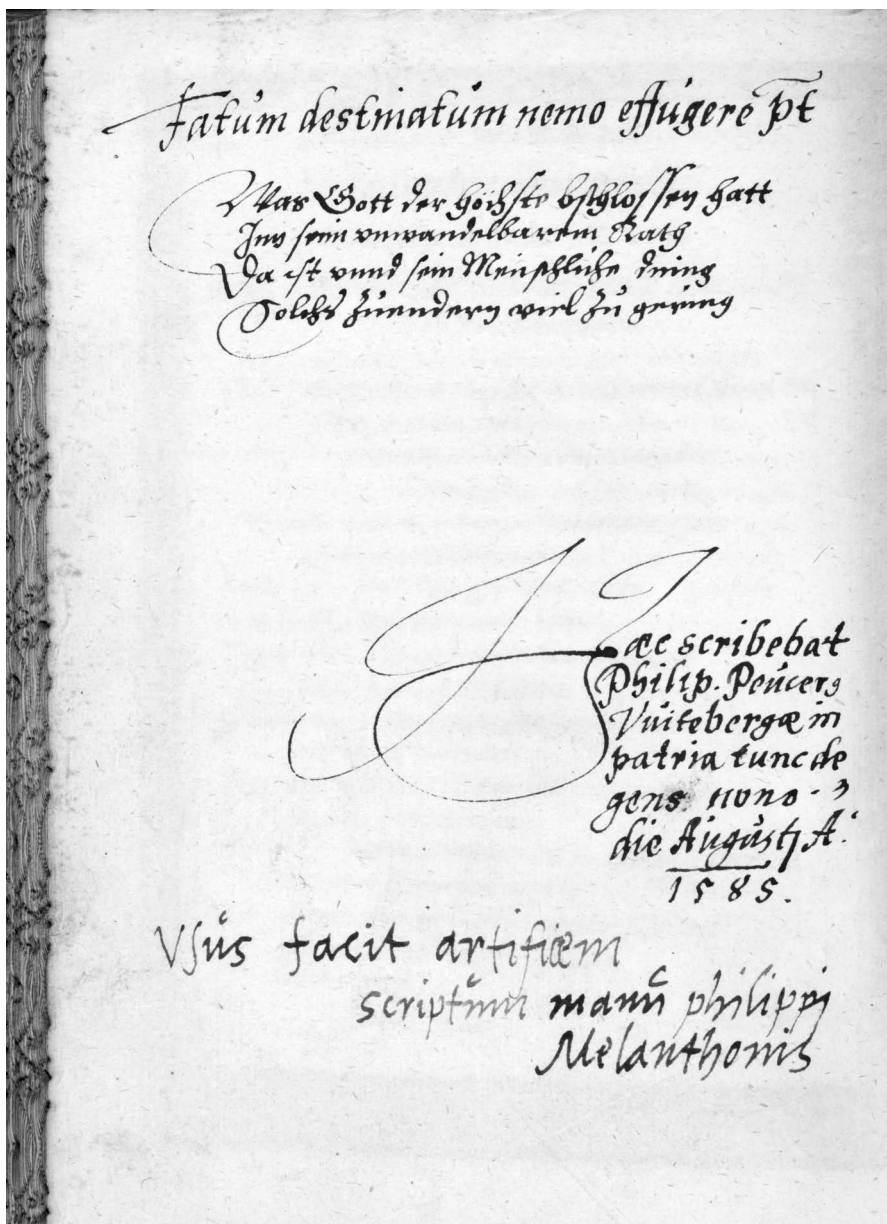 Fatum destinatum nemo effugere pt
Was Gott der höchste bschlossen hatt
Inn sein unwandelbarem Rath
Da ist unnd sein Menschliche ding
Solchs zuendern viel zu gering
Haec scribebat
Philip. Peucerg
Vuitebergæ in
patria tunc de
gens nono
die Augusti A.
1585.
Vsus facit artificem
scriptum manu philippi
Melanthonis